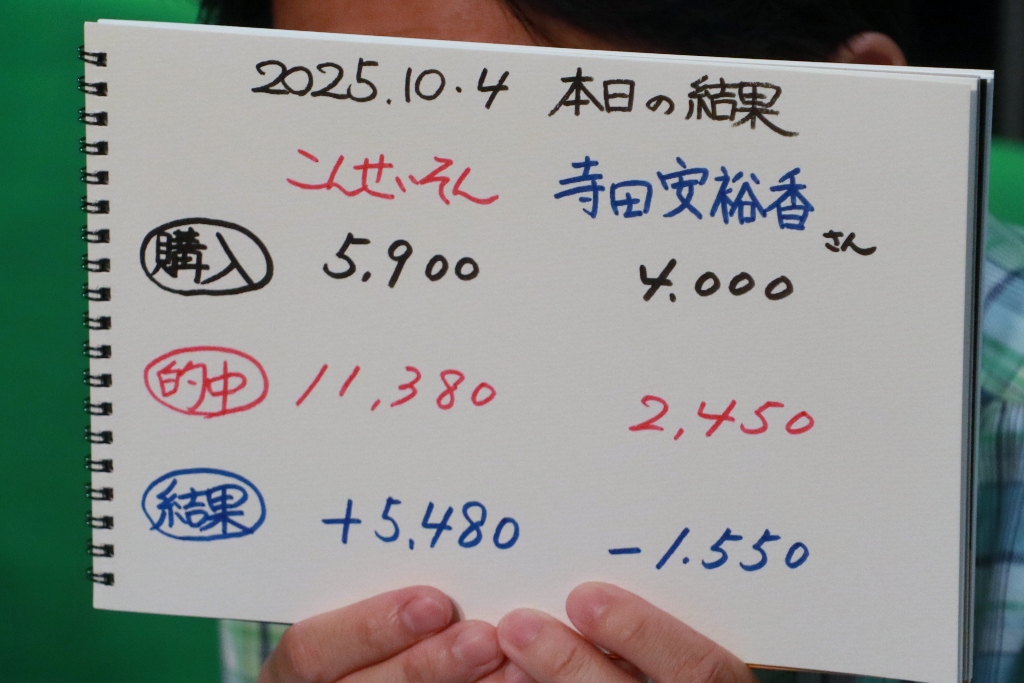 2025.10.4 本日の結果
こんせいそん 寺田安裕香さん
購入 5,900 4.000
的中 11,380 2,450
結果 +5,480 -1.550